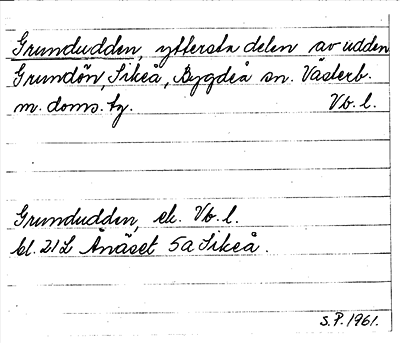 Grundudden, yttersta delen av udden
Grundön, Sikeå, Bygdeå sn. Västerb.
m. doms. hg. Vb. l.
Grundudden, ek. Vb. l.
bl. 21L Ånäset 5a Sikeå.
S.P. 1961.